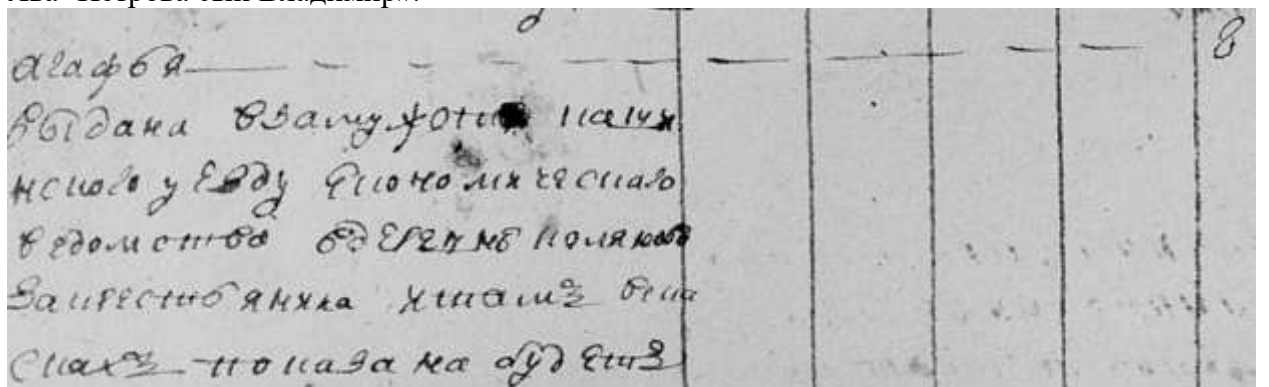 Агафья 8
выдана взамужотво кашин
нского уезду економического
ведомства вдеревню поляково
закрестьянина итамъ вска
скахъ показана будетъ